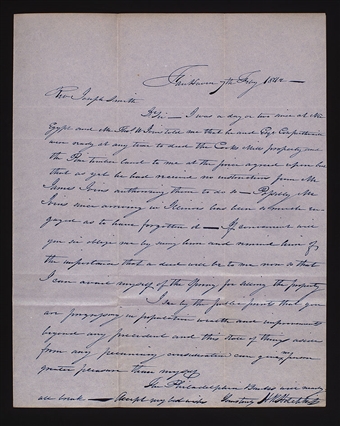 Fair Haven 9th Feby 1842 —
Rev Joseph Smith
D Sir — I was a day or two since at New
Egypt and Mr Thos W Ivins told me that he and
were ready at any time to deed the Cooks Mills property and
the Pine timber land to me at the price agreed upon but
that as yet he had received no instructions from Mr
James Ivins authorising them to do so — Possibly Mr
Ivins since arriving in Illinois has been so much en
gaged as to have forgotten it — If convenient will
you Sir oblige me by seeing him and remind him of
the importance that a deed will be to me now so that
I can avail myself of the Spring for the property
I see by the public prints that you
are progressing in population wealth and improvement
beyond any precedent and this State of things aside
from any pecuniary consideration can give no person
greater pleasure than myself
The Philadelphia Banks are nearly
all broke — Accept my best wishes